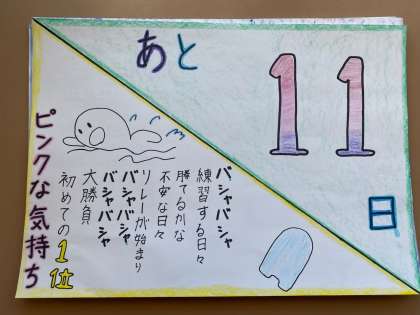 あと
11
日
ピンクな気持ち
バシャバシャ
練習する日々
勝てるかな
不安な日々
リレーが始まり
バシャバシャ
バシャバシャ
大勝負
初めての1位